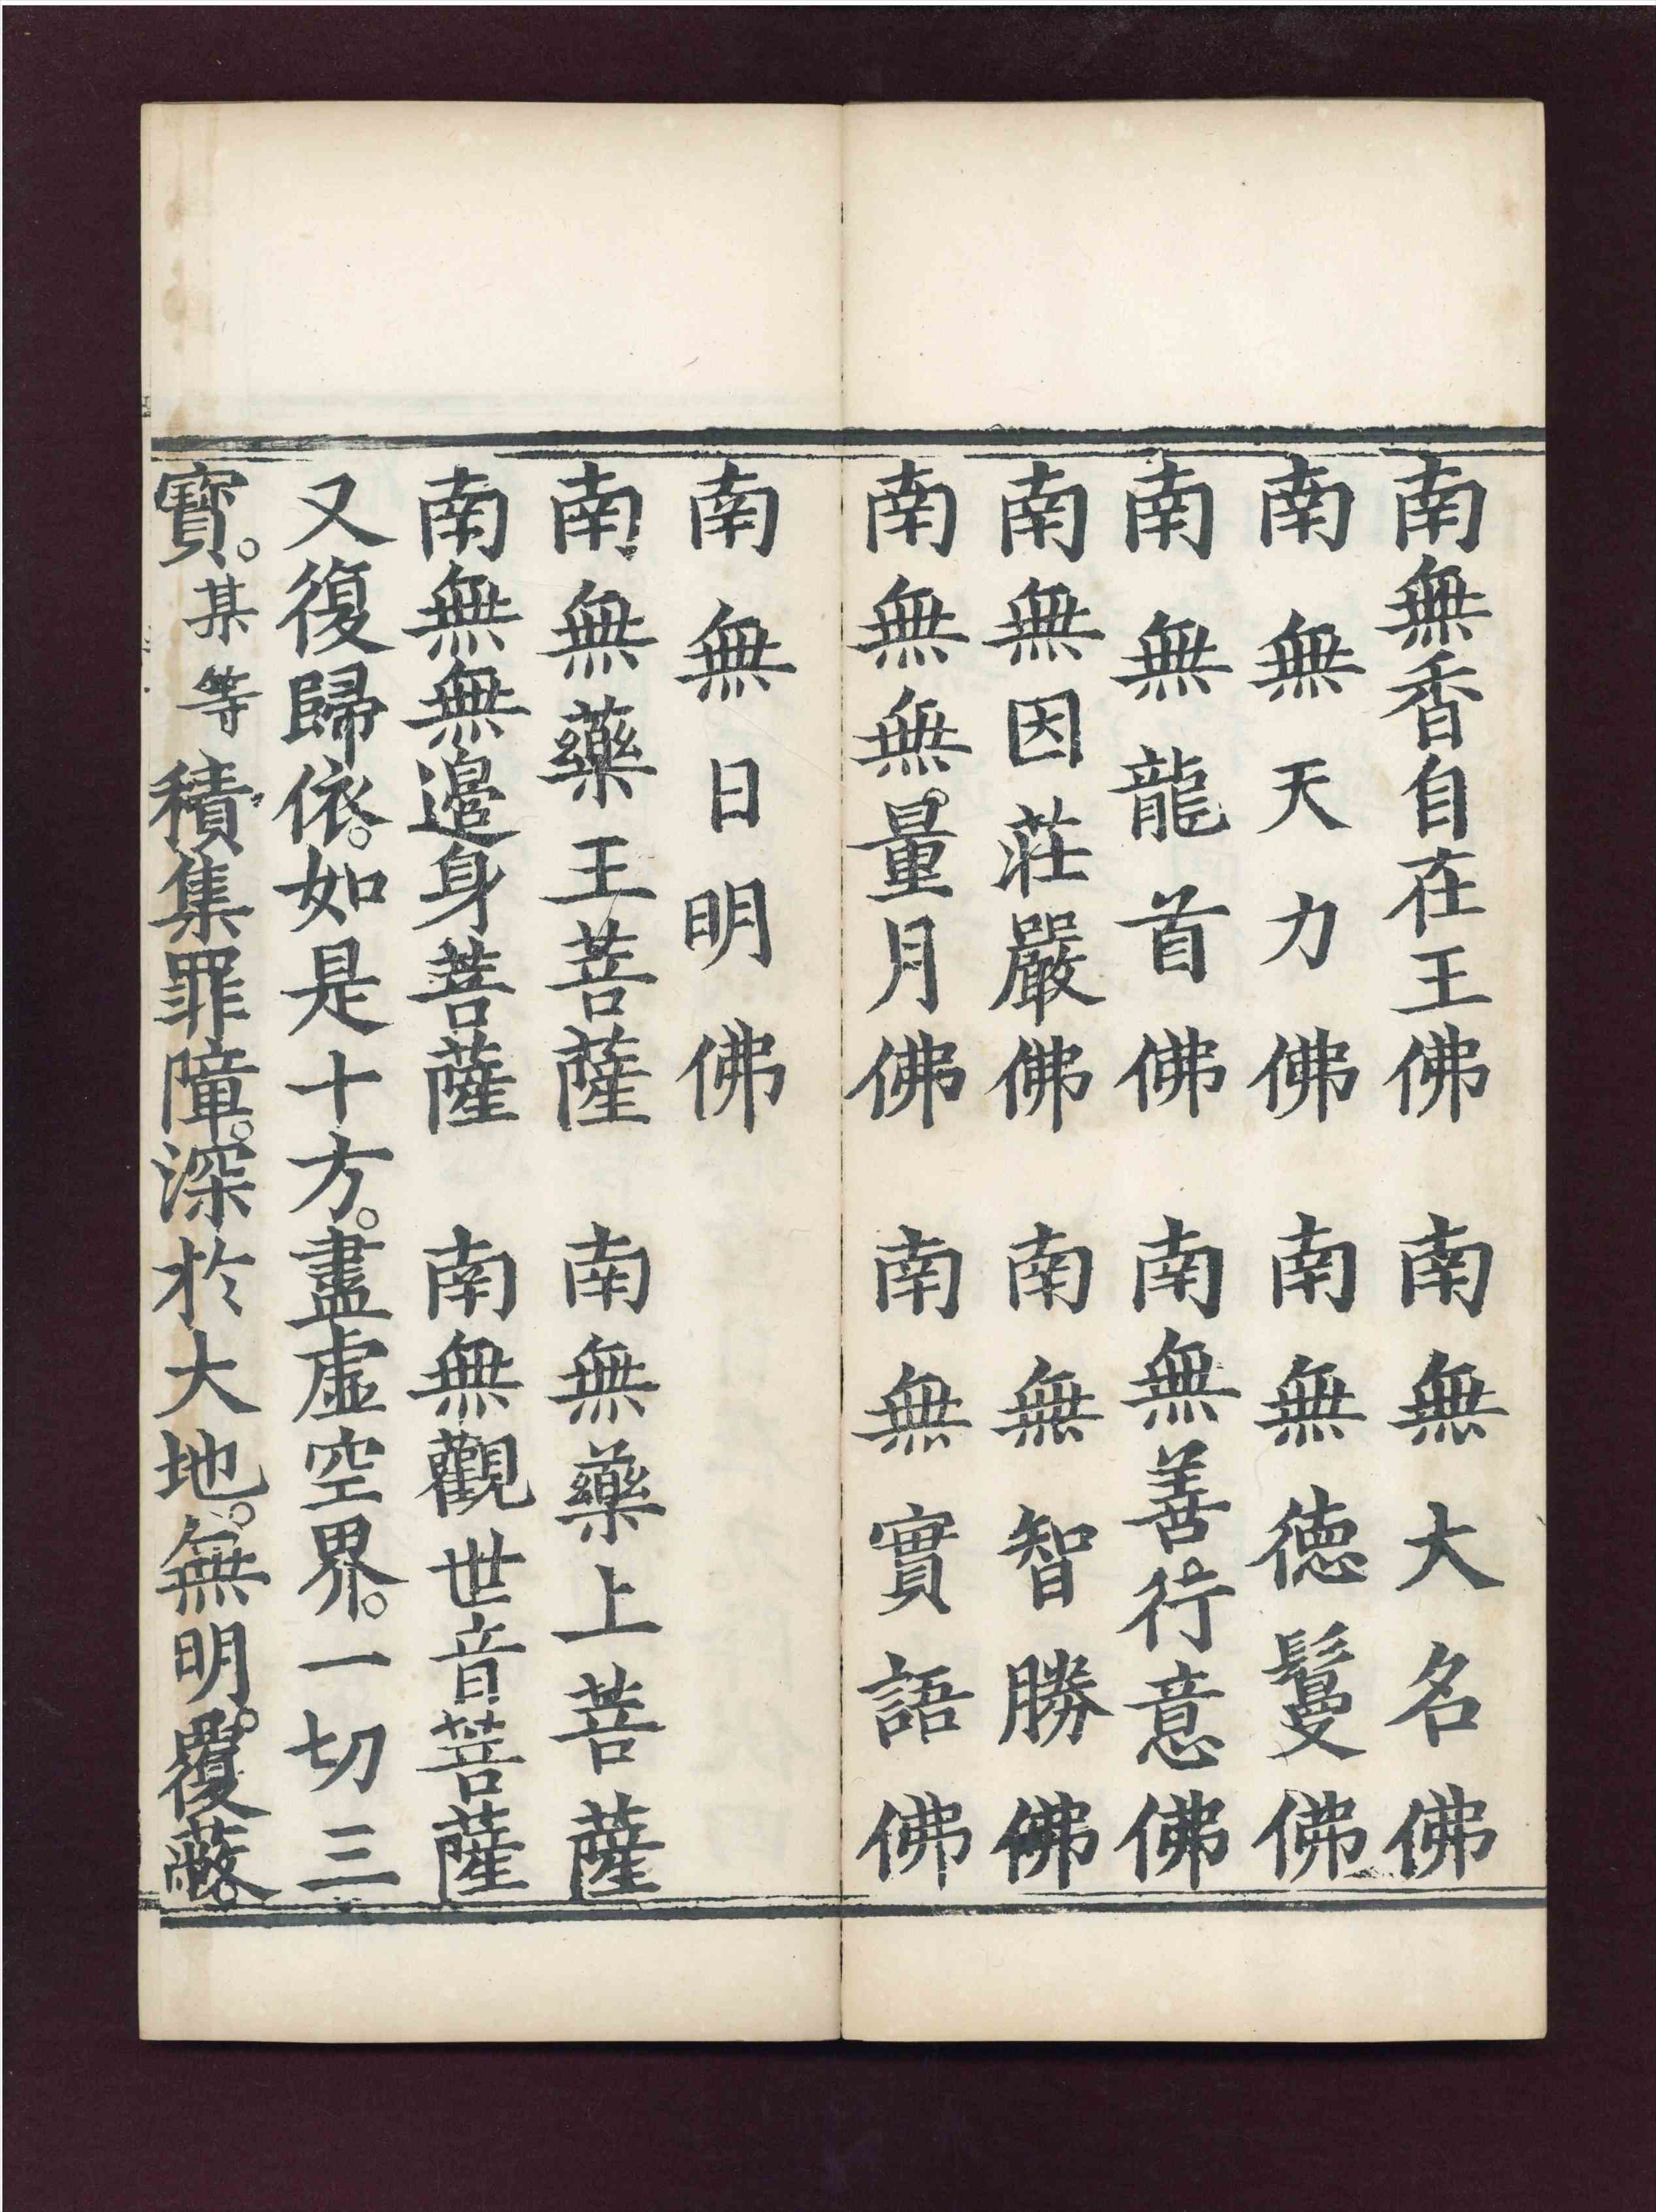 南無香自在王佛　南無大名佛
南無天力佛　南無德鬘佛
南無龍首佛　南無善行意佛
南無因莊嚴佛　南無智勝佛
南無無量月佛　南無實語佛
南無日明佛
南無藥王菩薩　南無藥上菩薩
南無無邊身菩薩　南無觀世音菩薩
又復歸依。如是十方。盡虛空界。一切三
寶。某等積集罪障。深於大地。無明。覆蔽。